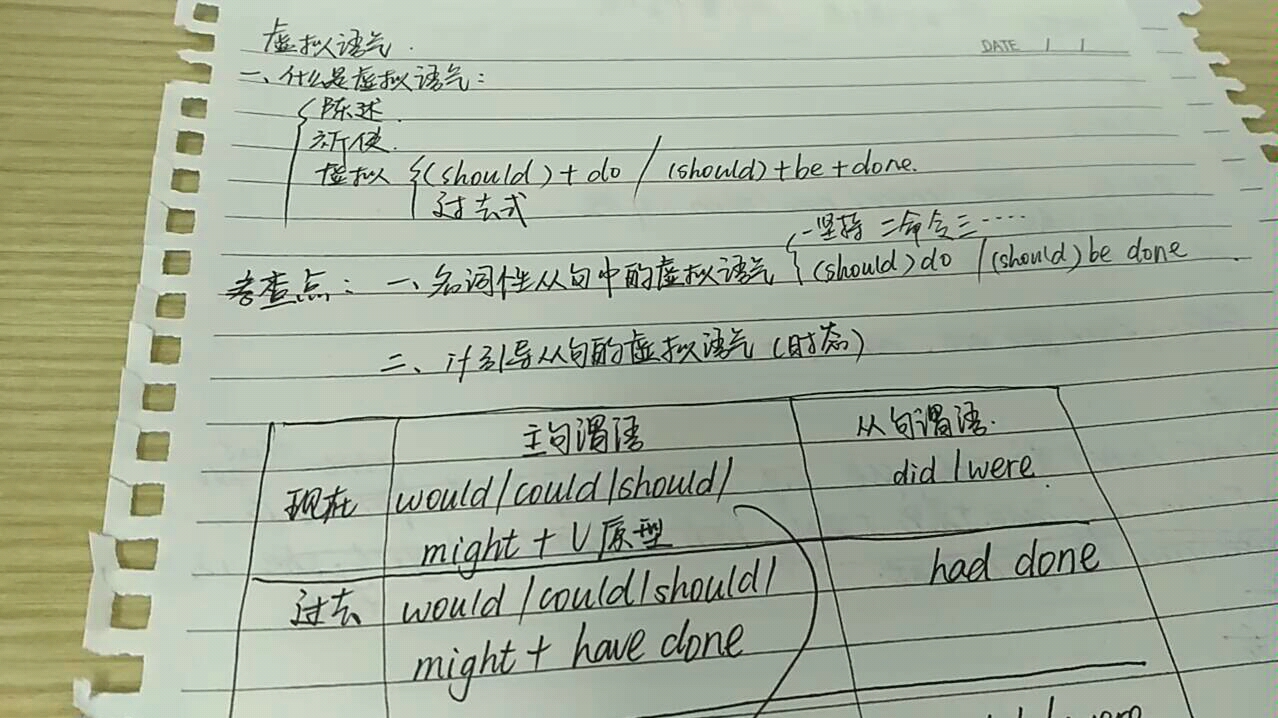 虚拟语气.
DATE / /
一、什么是虚拟语气:
陈述.
祈使.
虚拟 (should)+do / (should)+be+done.
过去式
一坚持 二命令三……
考查点: 一、名词性从句中的虚拟语气 (should)do /(should)be done
二、if引导从句的虚拟语气(时态)
主句谓语 从句谓语.
现在 would/could/should/ did/were.
might+V原型
过去 would/could/should/ had done
might+have done